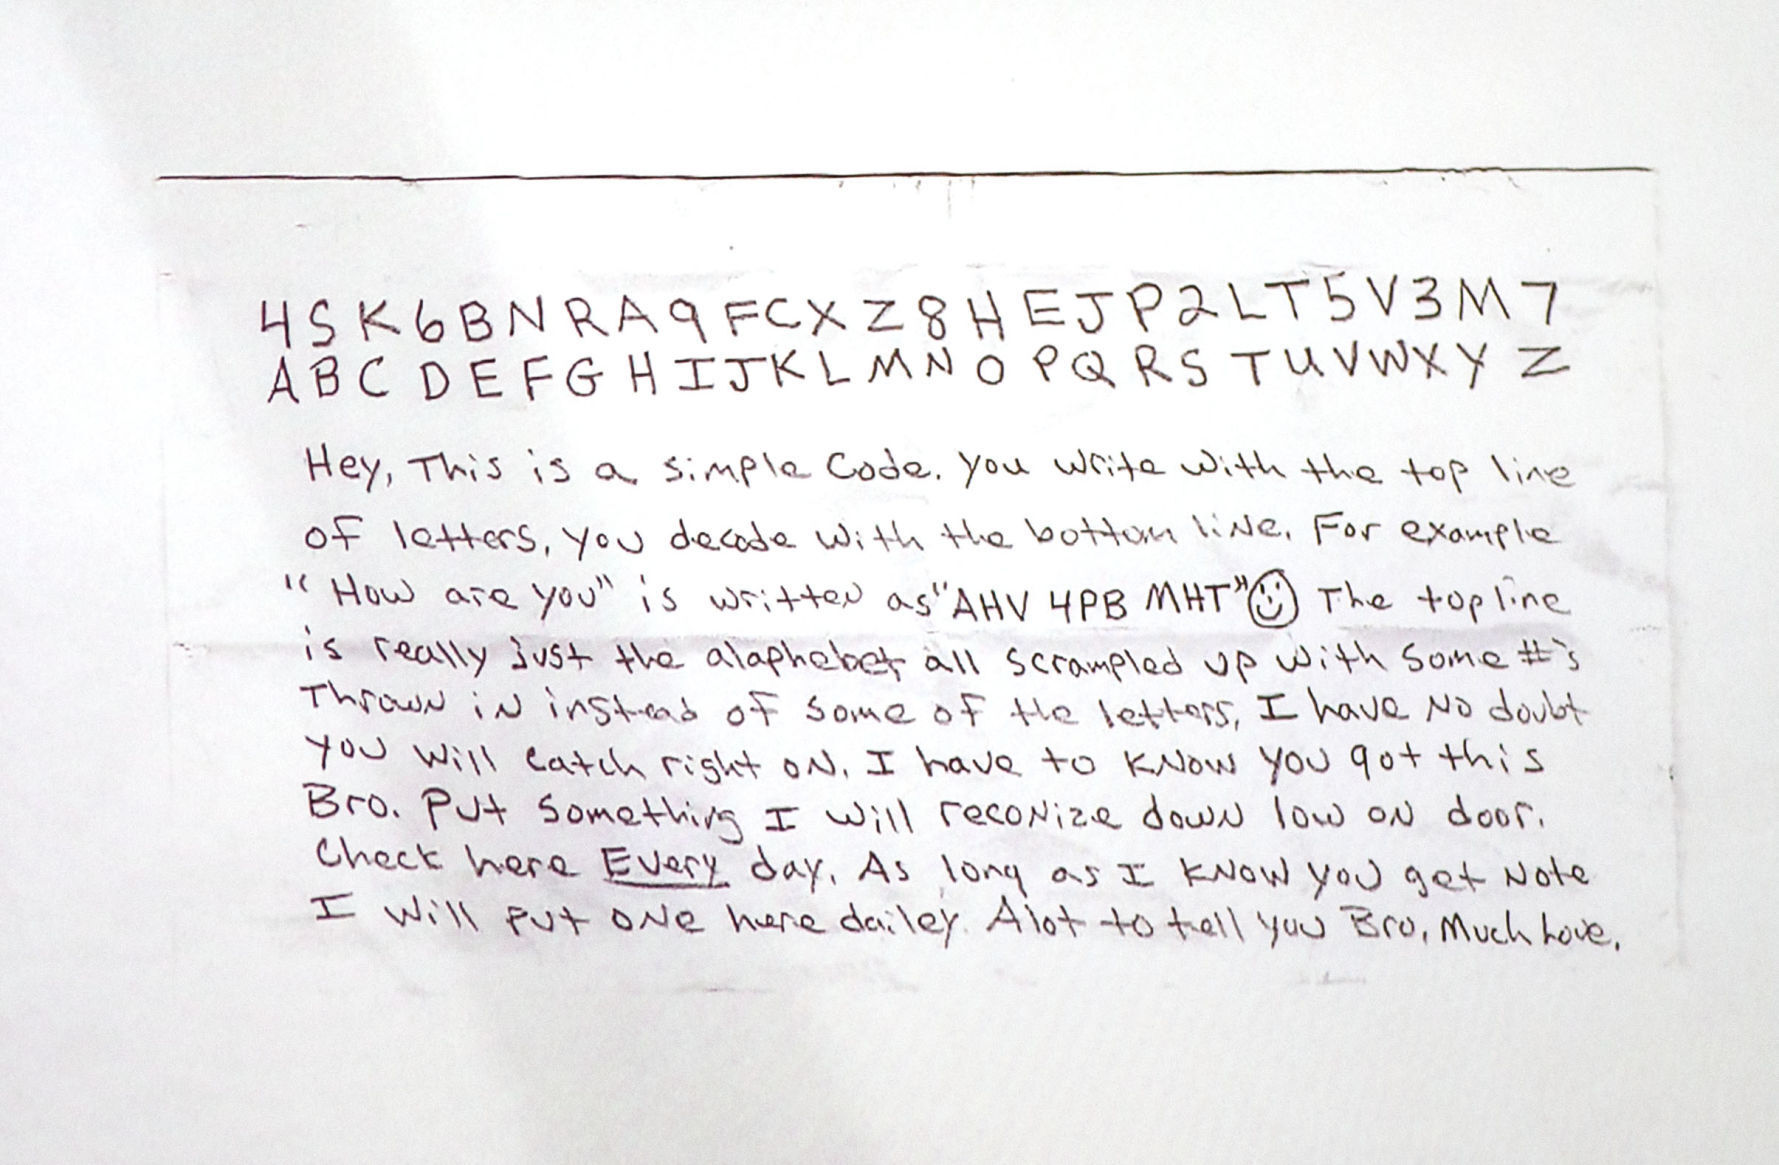 4SK6BNRA9FCXZ8HEJP2LT5V3M7
ABCDEFGHIJKLMNOPQRSTUVWXYZ
Hey, This is a simple Code. you write with the top line
of letters, you decode with the bottom line. For example
"How are you" is written as "AHV 4PB MHT" ☺ The top line
is really Just the alaphebet all scrampled up with some #'s
Thrown in instead of some of the letters, I have No doubt
you will catch right on. I have to know you got this
Bro. Put something I will reconize down low on door.
Check here Every day. As long as I know you get Note
I will put one here dailey. Alot to tell you Bro, Much Love,